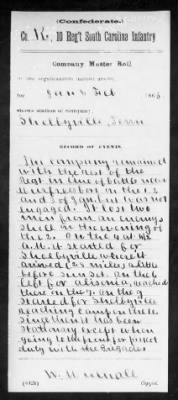 (Confederate.)
Co. K, 10 Reg't South Carolina Infantry
Company Muster Roll
of the organization named above,
for Jan & Feb 1863.
Station of company:
Shelbyville, Tenn
RECORD OF EVENTS.
The company remained
with the rest of the
Regt in line of battle near
Murfreesboro on the 1, 2
and 3 of Jan, but was not
engaged. It lost two
men from an enemys
shell on the evening of
the 2. On the 4 at
A.M. it started for
Shelbyville where it
arrived miles
before sun set. On the 6
left for reached
there on the 7. on the 9
started for Shelbyville
reaching camp on the 10
since then it has been
stationary except when
going to the front on picket
duty with the Brigade.
Copyist.